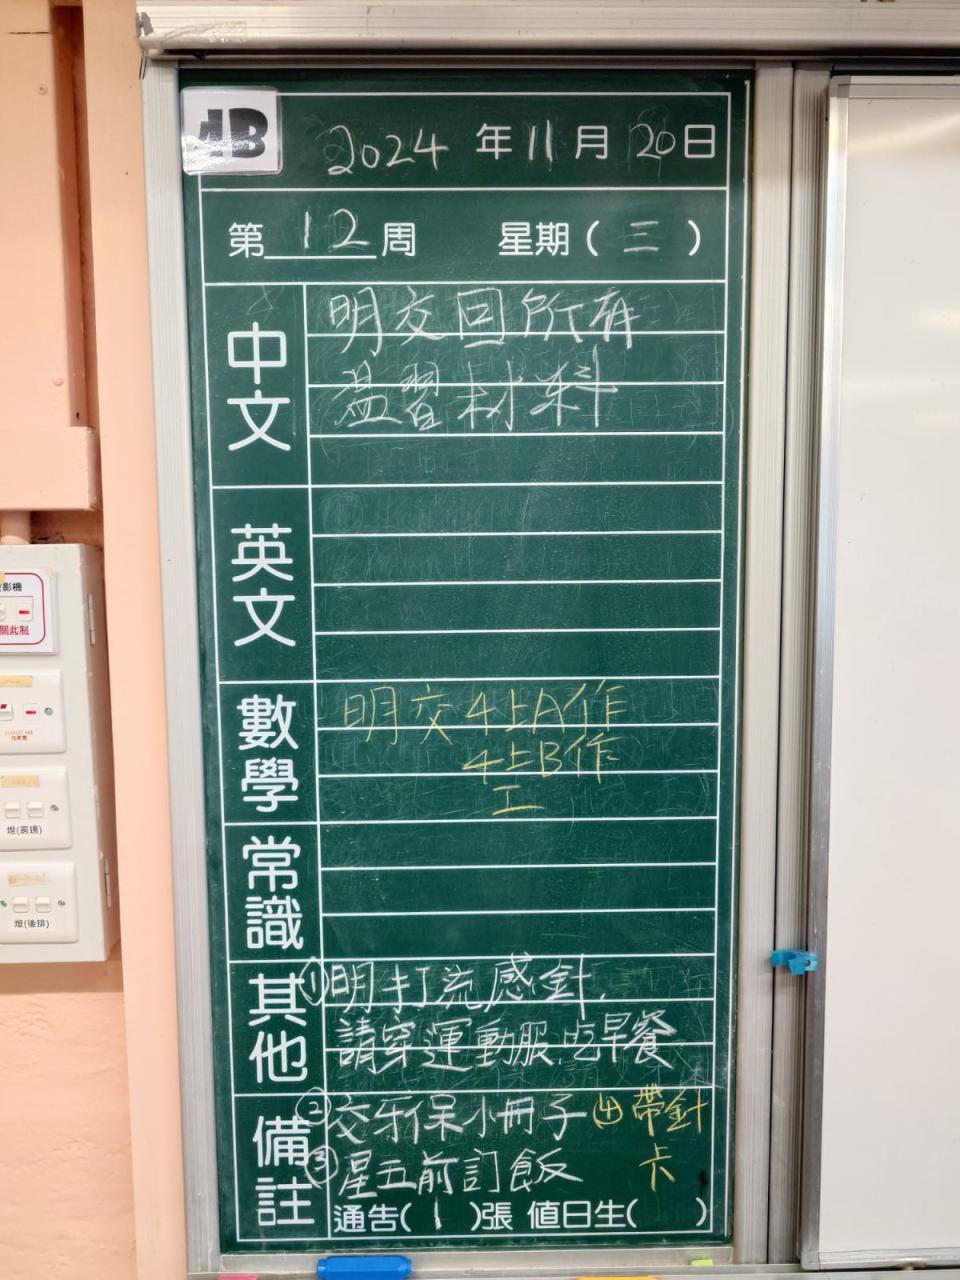 4B
2024 年 11 月 20 日
第 12 周 星期 ( 三 )
中文
明交回所有
溫習材料
英文
數學
明交4上A作
4上B作
工
常識
其他
①明打流感針,
請穿運動服,吃早餐
備註
②交牙保小冊子 ④帶針
卡
③星五前訂飯
通告( 1 )張 值日生( )
影機
關此制
燈(窗邊)
燈(後排)